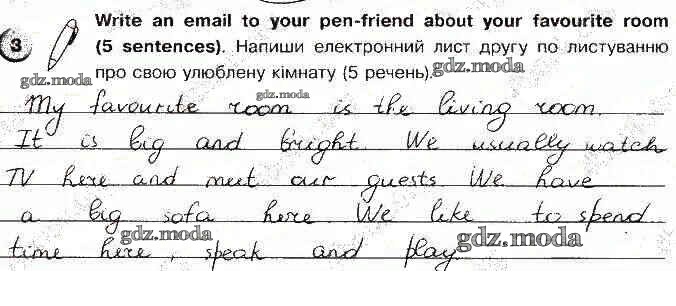 3 Write an email to your pen-friend about your favourite room
(5 sentences). Напиши електронний лист другу по листуванню
gdz.moda про свою улюблену кімнату (5 речень). gdz.moda
gdz.moda
My favourite room is the living room.
It is big and bright. We usually watch
TV here and meet our guests We have
a big sofa here. We like to spend
gdz.moda gdz.moda
time here, speak and play